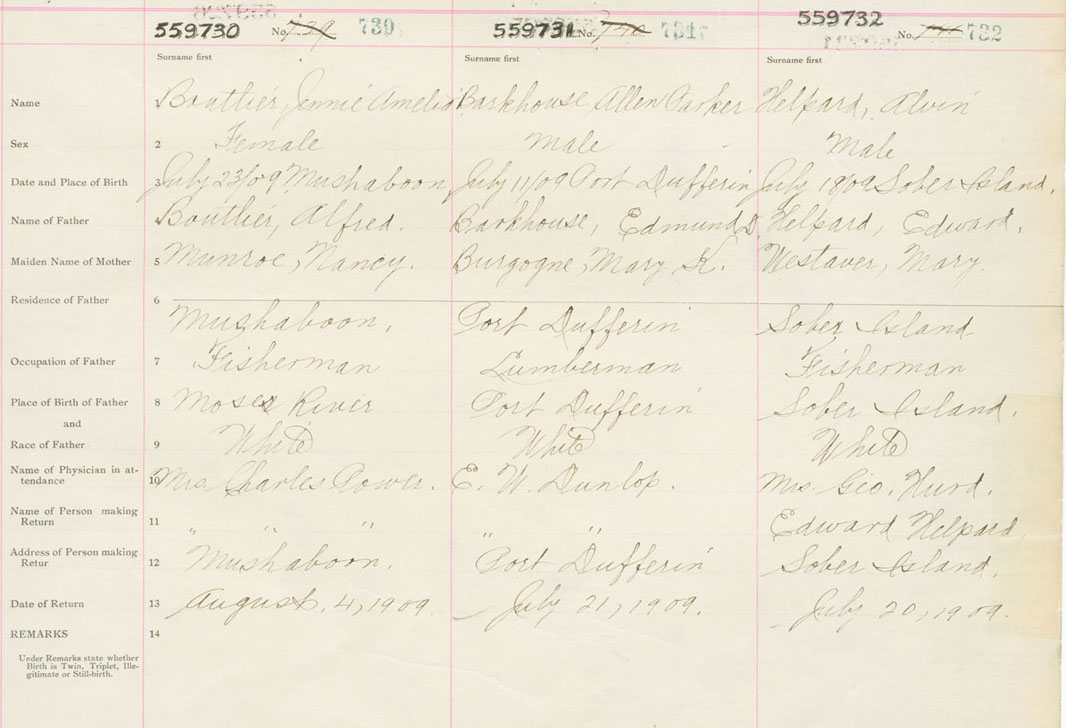 559730 No. 739 730 559731 No. 740 731 559732 No. 741 732
Surname first Surname first Surname first
Name 1 Bouttier, Jennie Amelia Barkhouse, Allen Parker Helpard, Alvin
Sex 2 Female Male Male
Date and Place of Birth 3 July 23/09 Mushaboon July 11/09 Port Dufferin July 18/09 Sober Island.
Name of Father 4 Bouttier, Alfred. Barkhouse, Edmund D. Helpard, Edward.
Maiden Name of Mother 5 Munroe, Nancy. Burgogne, Mary K. Westaver, Mary.
Residence of Father 6
Mushaboon. Port Dufferin Sober Island
Occupation of Father 7 Fisherman Lumberman Fisherman
Place of Birth of Father 8 Moses River Port Dufferin Sober Island.
and
Race of Father 9 White White White
Name of Physician in at-
tendance 10 Mrs. Charles Power. E. W. Dunlop. Mrs. Geo. Hurd.
Name of Person making
Return 11 " " " " " Edward Helpard.
Address of Person making
Retur 12 Mushaboon. Port Dufferin Sober Island.
Date of Return 13 August. 4, 1909. July 21, 1909. July 20, 1909.
REMARKS 14
Under Remarks state whether
Birth is Twin, Triplet, Ille-
gitimate or Still-birth.